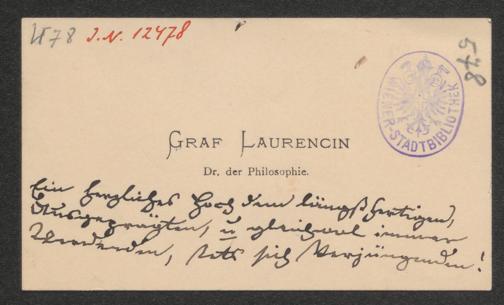 478 I.N. 12478
578
WIENER-STADTBIBLIOTHEK
GRAF LAURENCIN
Dr. der Philosophie.
Ein herzliches Hoch dem längst fertigen,
Ausgeprägten, u gleichwol immer
Werdenden, stets sich Verjüngenden!